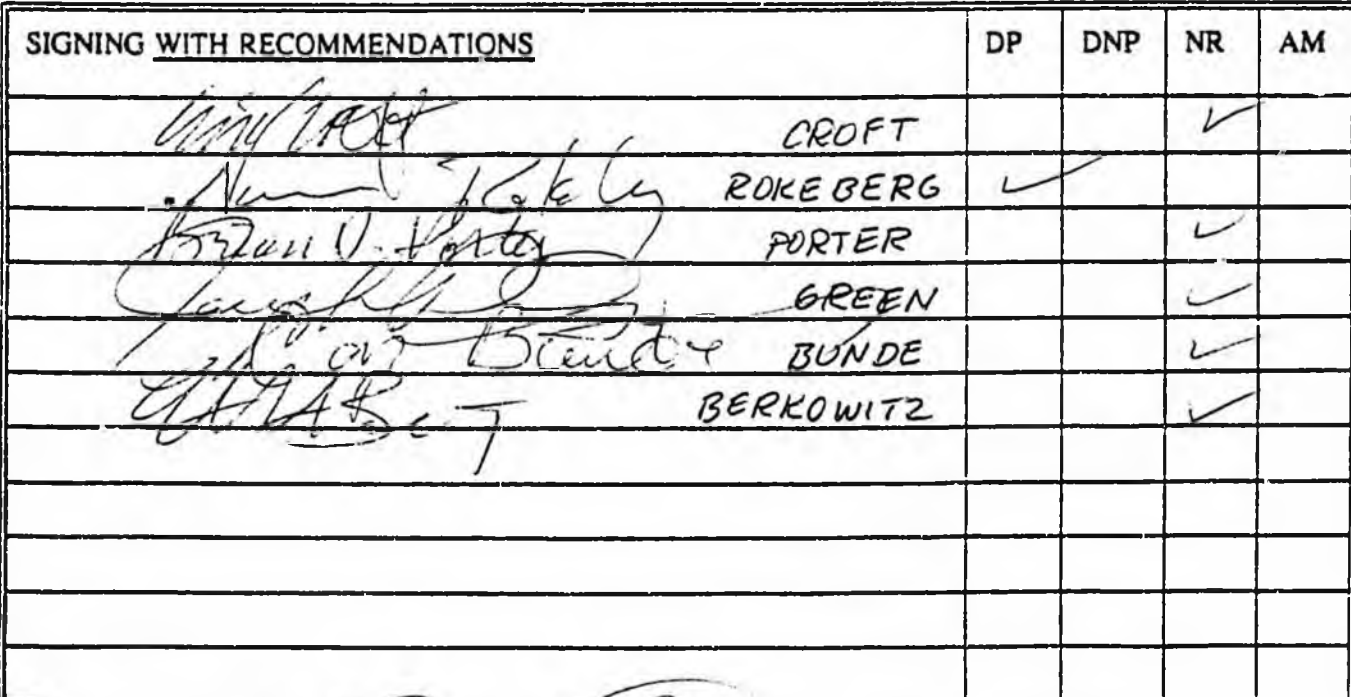 SIGNING WITH RECOMMENDATIONS DP DNP NR AM
CROFT ✓
ROKEBERG ✓
Brian D. Porter PORTER ✓
GREEN ✓
Con Bunde BUNDE ✓
BERKOWITZ ✓